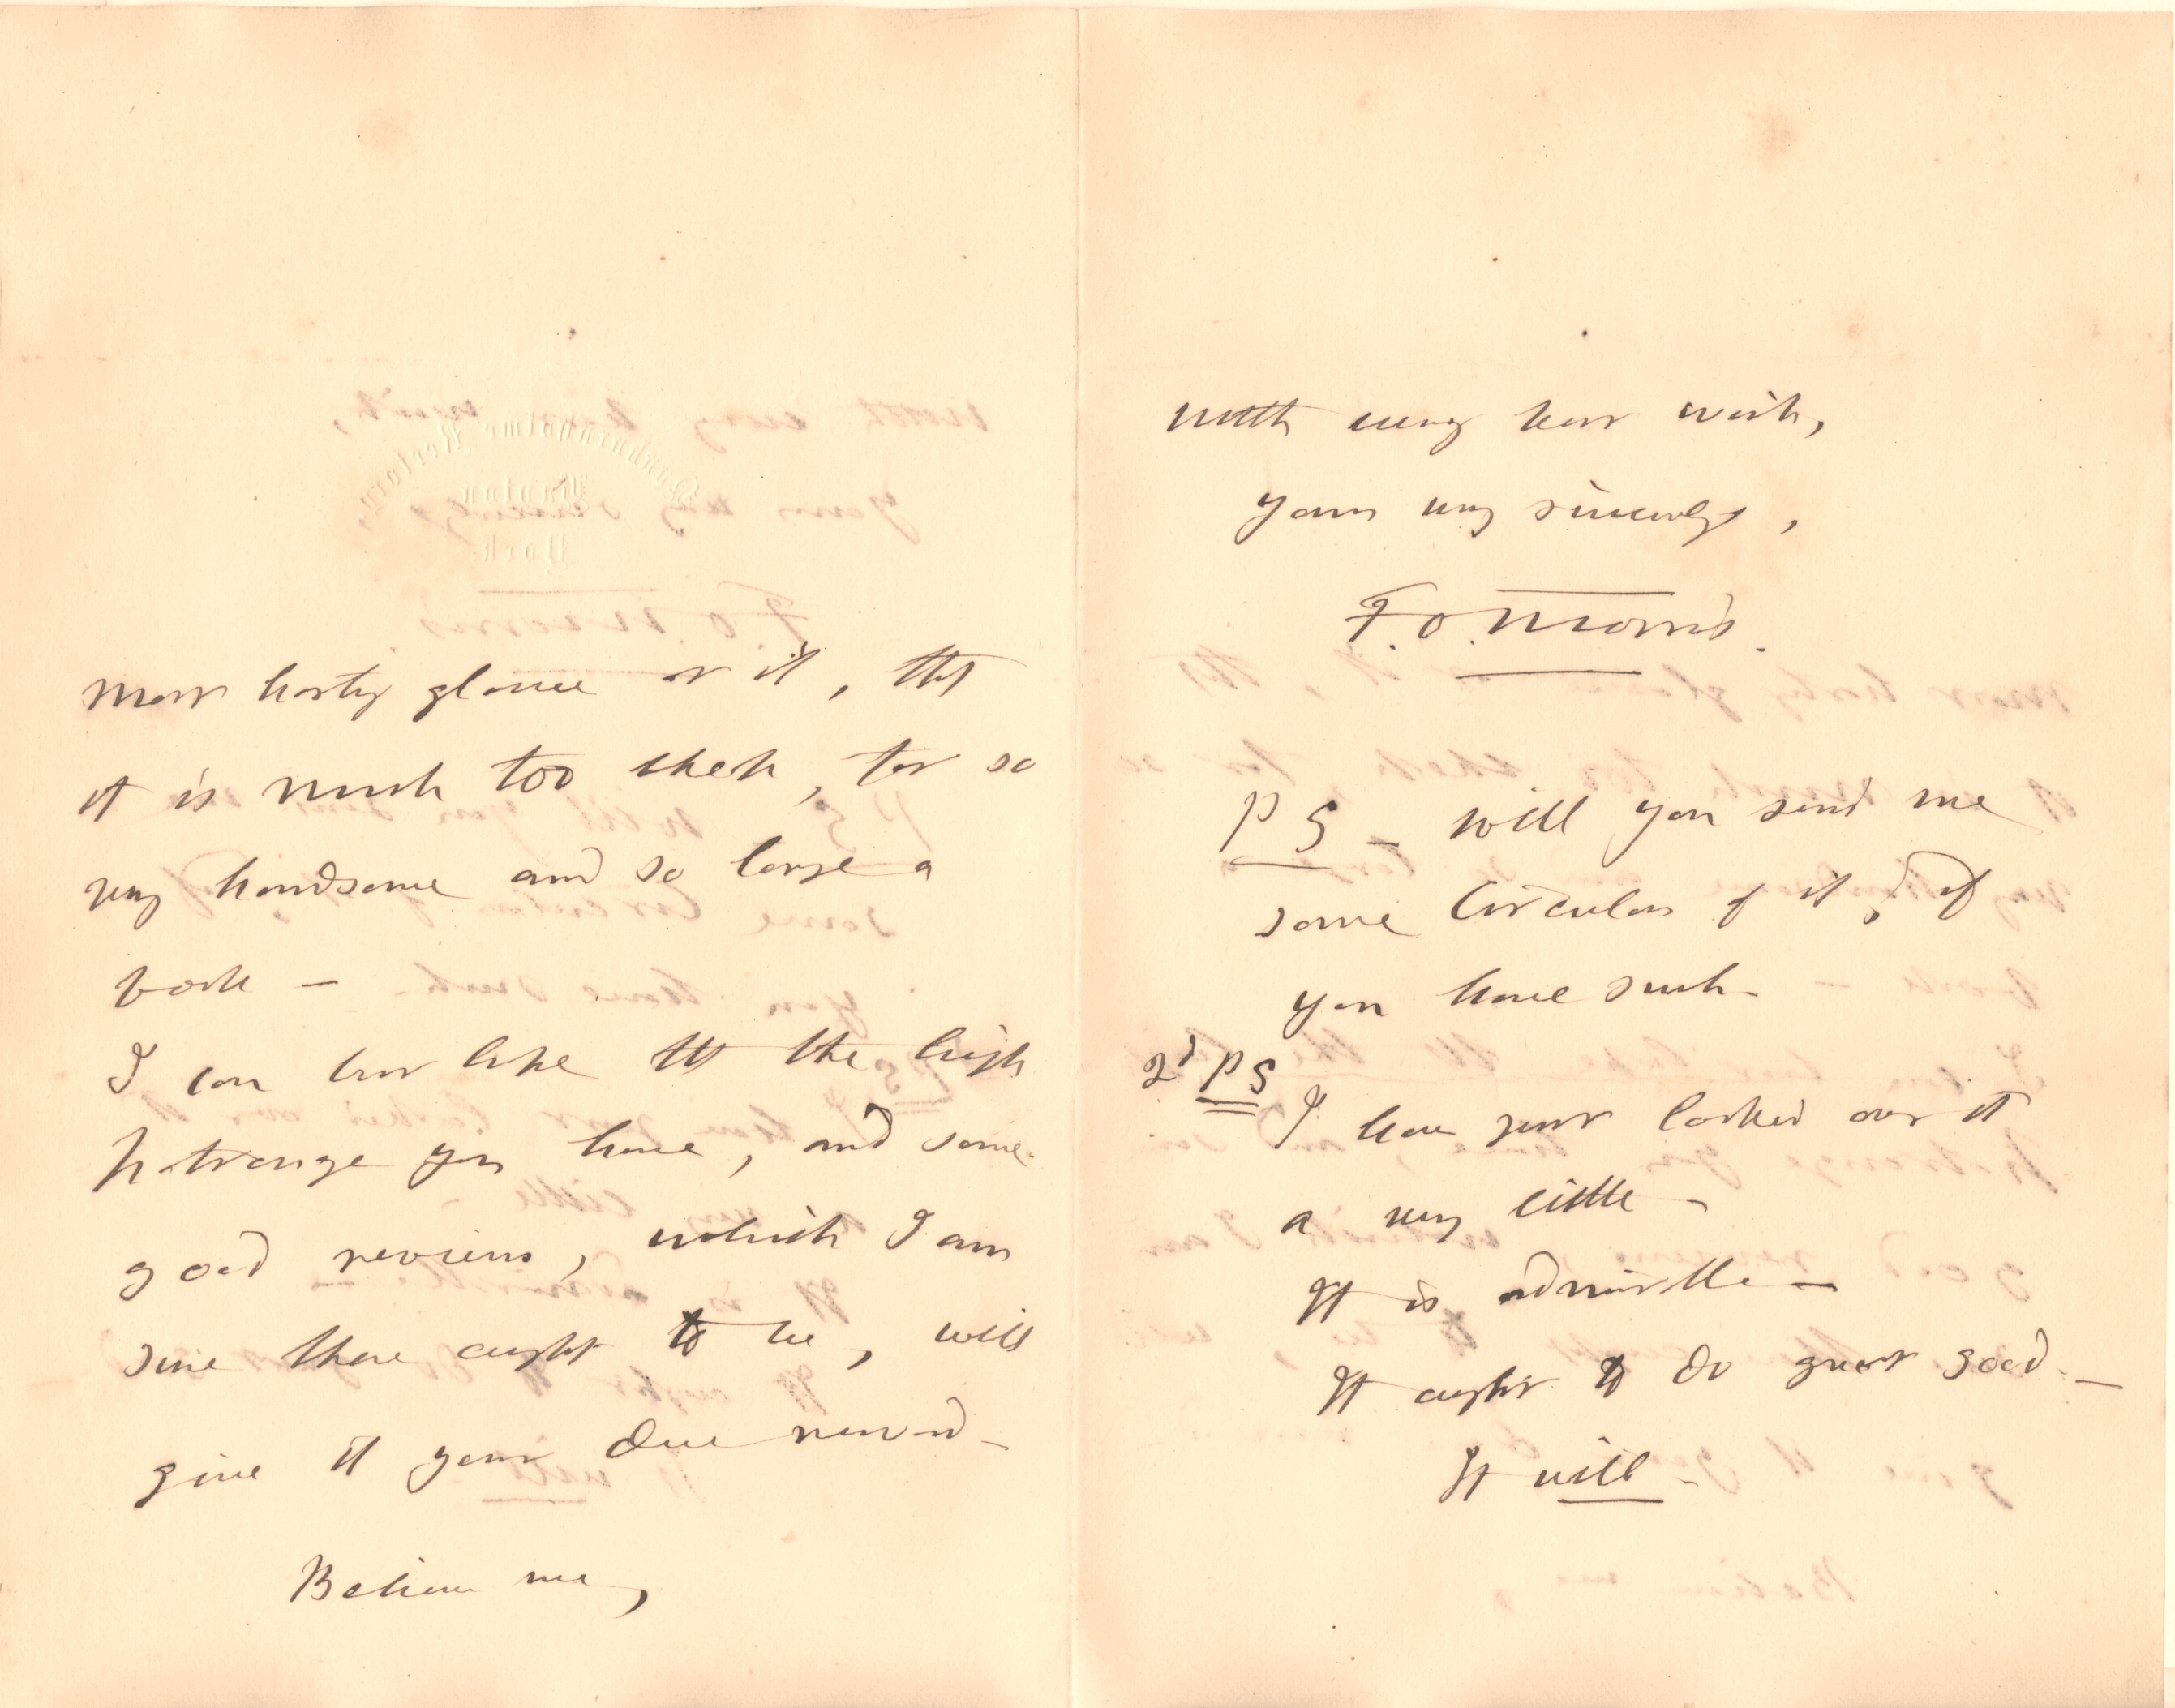 most hasty glance at it, that
it is much too cheap, for so
very handsome and so large a
book –
I can but hope that the high
patronage you have, and some
good reviews, which I am
sure there ought to be, will
give it your due reward –
Believe me,
with every best wish,
yours very sincerely,
F. O. Morris.
PS – Will you send me
some Circulars of it, if
you have such –
2d PS
I have just looked over it
a very little –
It is admirable –
It ought to do great good –
It will –
Nunburnholme Rectory,
Hayton
York